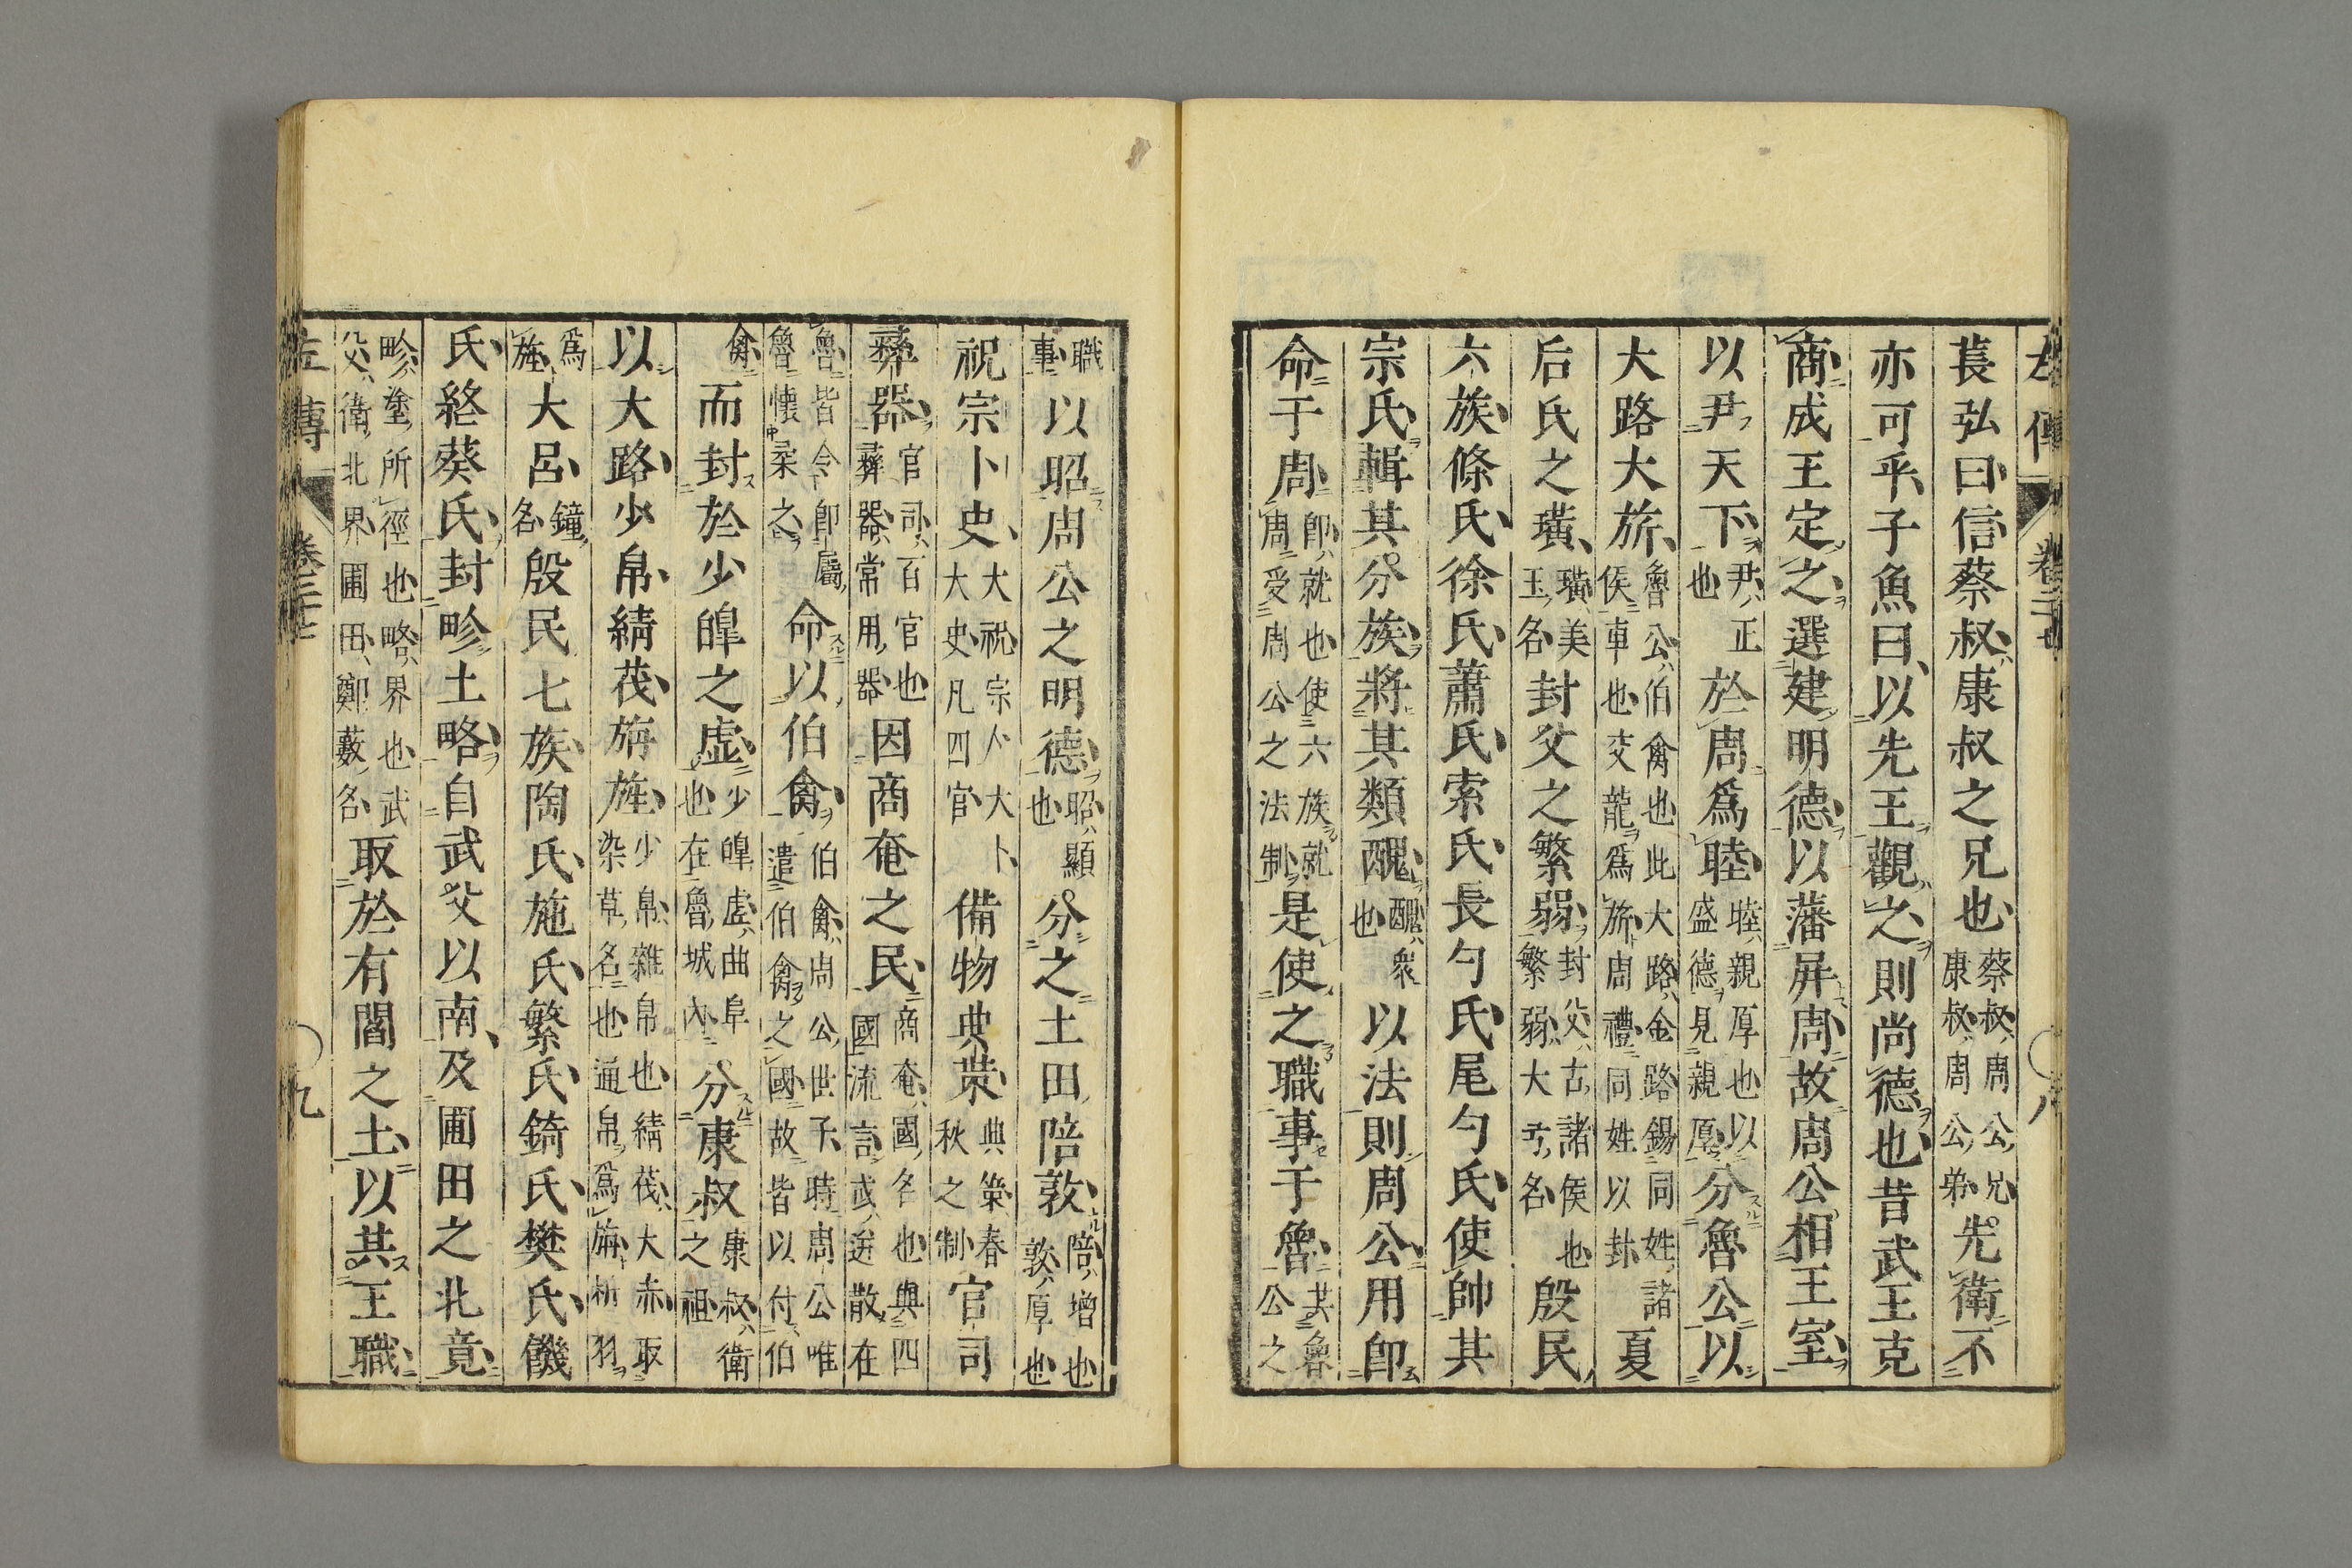 左傳 卷二十七 〇八
萇弘曰信蔡叔康叔之兄也蔡叔周公兄康叔周公弟先衛不
亦可乎子魚曰以先王觀之則尚德也昔武王克
商成王定之選建明德以藩屏周故周公相王室
以尹天下尹正也於周爲睦睦親厚也以盛德見親厚分魯公以
大路大旂魯公伯禽也此大路金路錫同姓諸侯車也交龍爲旂周禮同姓以封夏
后氏之璜璜美玉名封父之繁弱封父古諸侯也繁弱大弓名殷民
六族條氏徐氏蕭氏索氏長勺氏尾勺氏使帥其
宗氏輯其分族將其類醜醜衆也以法則周公用卽
命于周卽就也使六族就周受周公之法制是使之職事于魯共魯公之
職事以昭周公之明德昭顯也分之土田陪敦陪增也敦厚也
祝宗卜史大祝宗人大卜大史凡四官備物典策典策春秋之制官司
彝器官司百官也彝器常用器因商奄之民商奄國名也與四國流言或迸散在
魯皆令卽屬魯懷柔之命以伯禽伯禽周公世子時周公唯遣伯禽之國故皆以付伯
禽而封於少皞之虛少皞虛曲阜也在魯城內分康叔康叔衛之祖
以大路少帛綪茷旃旌少帛雜帛也綪茷大赤取染草名也通帛爲旃析羽
爲旌大呂鐘名殷民七族陶氏施氏繁氏錡氏樊氏饑
氏終葵氏封畛土略自武父以南及圃田之北竟
畛塗所徑也略界也武父衛北界圃田鄭藪名取於有閻之土以共王職
左傳 卷二十七 〇九